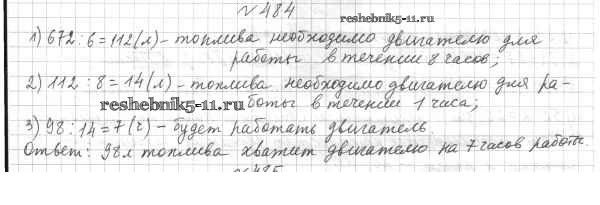 №484
reshebnik5-11.ru
1) 672 : 6 = 112 (л) - топлива необходимо двигателю для
работы в течении 8 часов;
2) 112 : 8 = 14 (л) - топлива необходимо двигателю для ра-
reshebnik5-11.ru
боты в течении 1 часа;
3) 98 : 14 = 7 (г) - будет работать двигатель.
Ответ: 98 л топлива хватит двигателю на 7 часов работы.
№485